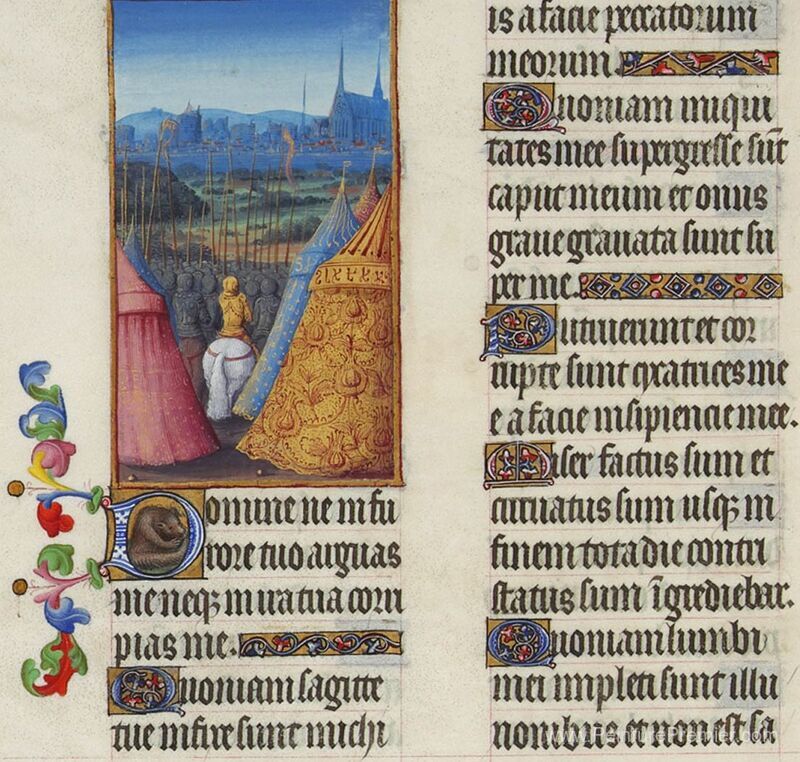 Domine ne in fu
rore tuo arguas
me neqꝫ in ira tua corri
pias me.
Quoniam sagitte
tue infixe sunt michi
is a facie peccatorum
meorum.
Quoniam iniqui
tates mee supergresse sūt
caput meum et onus
graue grauata sunt su
per me.
Putruerunt et cor
rupte sunt cicatrices me
e a facie insipiencie mee.
Miser factus sum et
curuatus sum usqꝫ in
finem tota die contri
status sum īgrediebar.
Quoniam lumbi
mei impleti sunt illu
sionibus et non est sa
www.PeinturePremier.com